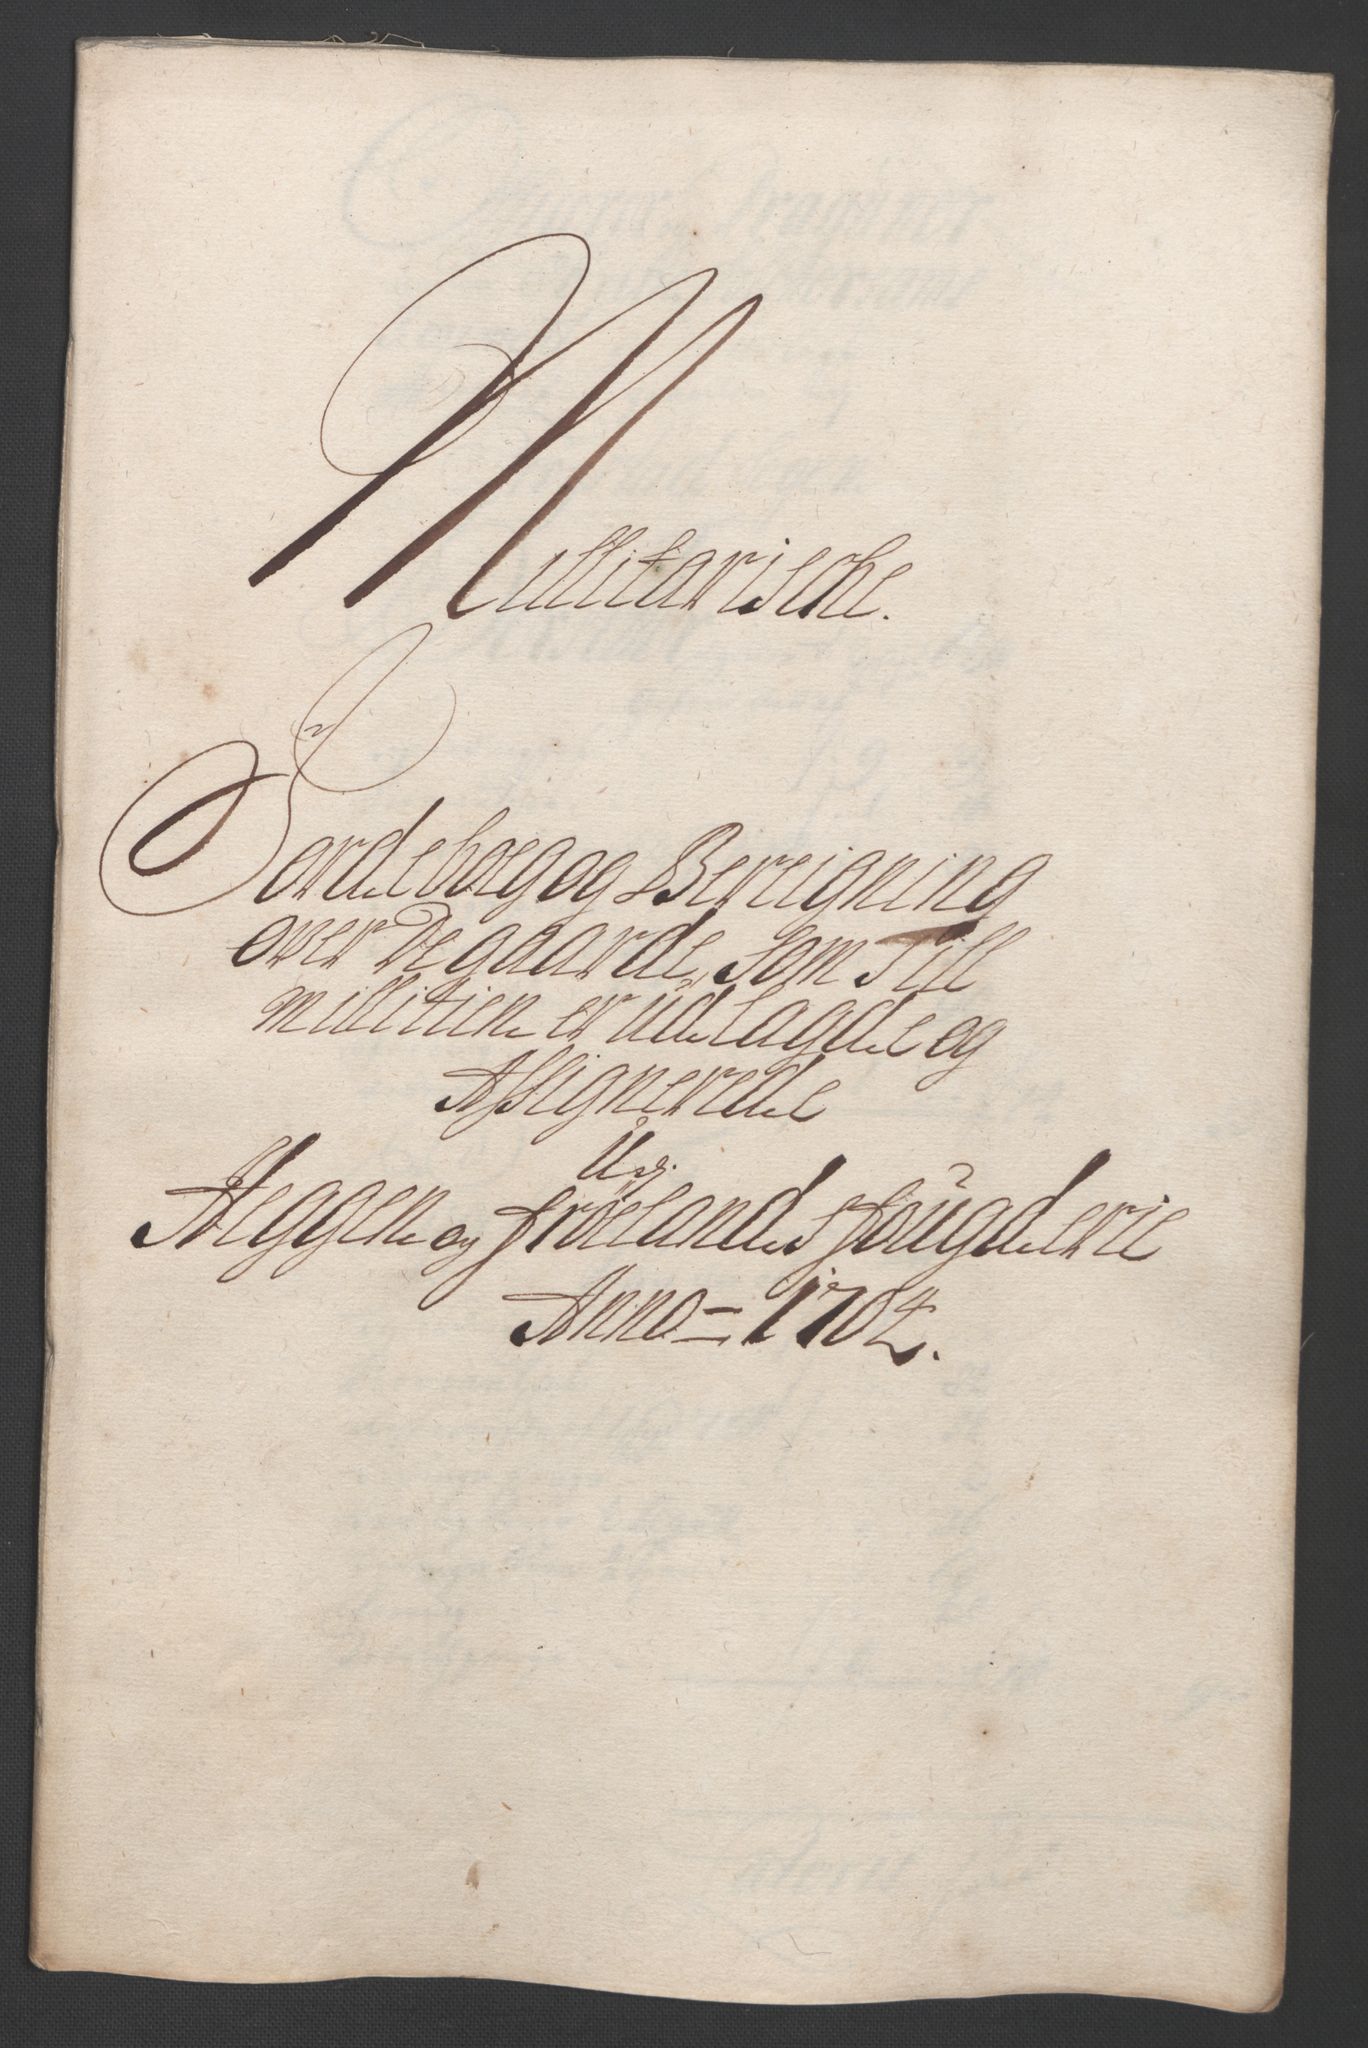 Millitarische.
Jordeboeg og Bereigning
over De gaarde, som Till
millitien er üdlagde og
Assignerede
Udj
Heggen og Fröelands fougderie
Anno 1704.